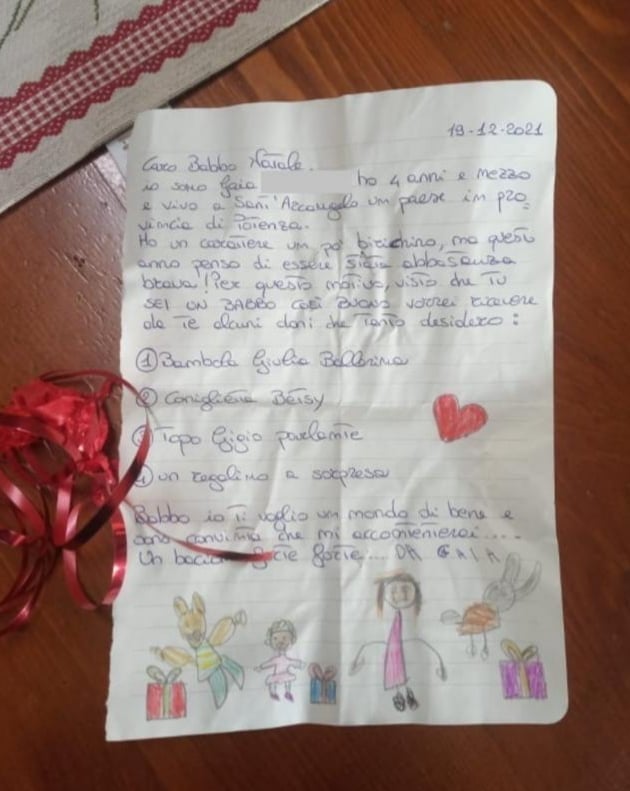 19-12-2021
Caro Babbo Natale.
io sono Gaia ho 4 anni e mezzo
e vivo a Sant'Arcangelo un paese in pro=
vincia di Potenza.
Ho un carattere un po' birichino, ma questo
anno penso di essere stata abbastanza
brava! Per questo motivo, visto che TU
SEI UN BABBO COSÌ BUONO vorrei ricevere
da Te alcuni doni che Tanto desidero:
① Bambola Giulia Ballerina
② Coniglietta Betsy
③ Topo Gigio parlante
④ un regalino a sorpresa
Babbo io Ti voglio un mondo di bene e
sono convinta che mi accontenterai....
Un bacione forte forte... DA GAIA